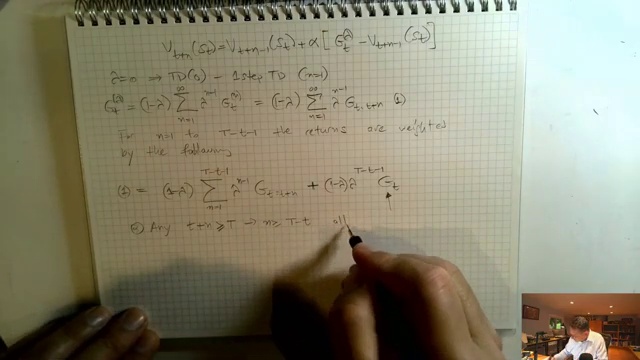 V_{t+n}(S_t) = V_{t+n-1}(S_t) + α[G_t^λ - V_{t+n-1}(S_t)]
λ=0 ⇒ TD(0) - 1 step TD (n=1)
G_t^{(λ)} = (1-λ) ∑_{n=1}^{∞} λ^{n-1} G_t^{(n)} = (1-λ) ∑_{n=1}^{∞} λ^{n-1} G_{t:t+n} (1)
For n=1 to T-t-1 the returns are weighted
by the following
(1) = (1-λ) ∑_{n=1}^{T-t-1} λ^{n-1} G_{t:t+n} + (1-λ) λ^{T-t-1} G_t
Any t+n ≥ T → n ≥ T-t all